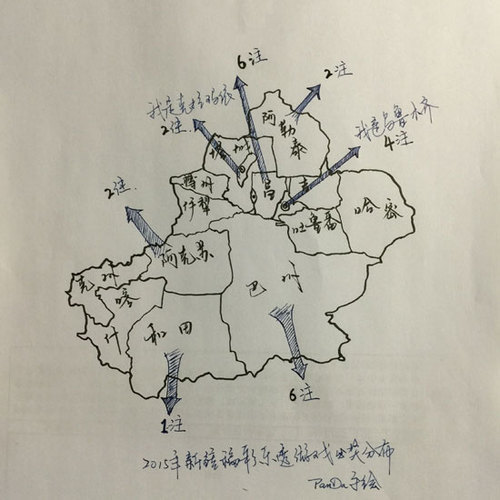 6注
2注
我是克拉玛依
2注
阿勒泰
我是乌鲁木齐
4注
塔州
博州
伊犁
昌
吉
吐鲁番
哈密
2注
阿克苏
克州
喀什
巴州
和田
1注
6注
2015年新疆福彩乐透游戏出奖分布
PanDa手绘